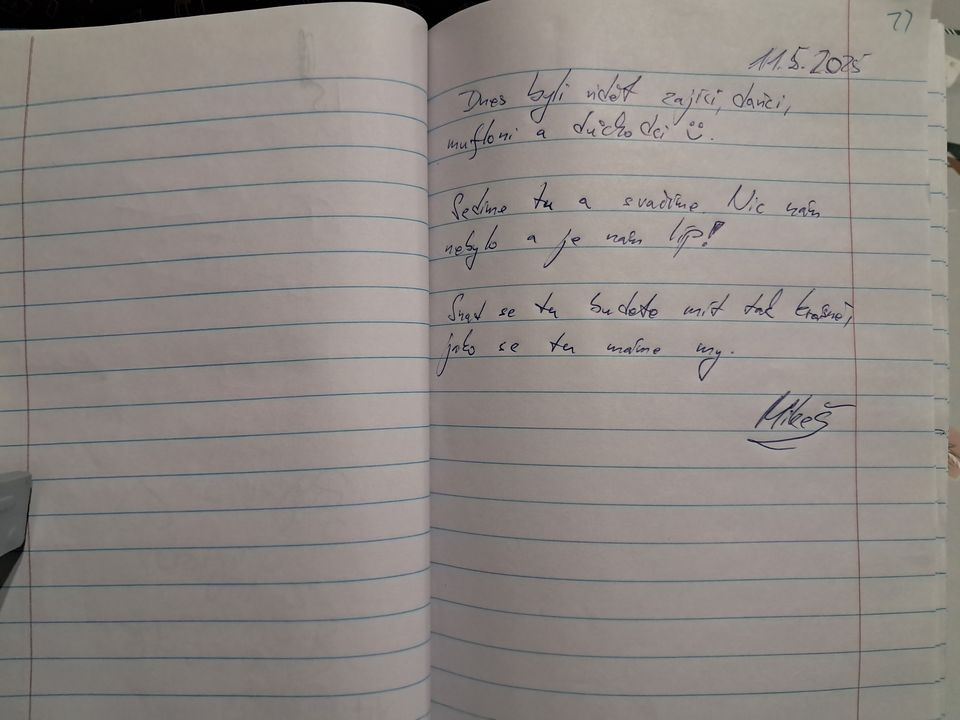 77
11.5.2025
Dnes byli vidět zajíci, daňci,
mufloni a důchodci ☺.
Sedíme tu a svačíme. Nic nám
nebylo a je nám líp!
Snad se tu budete mít tak krásně,
jako se tu máme my.
Mikeš